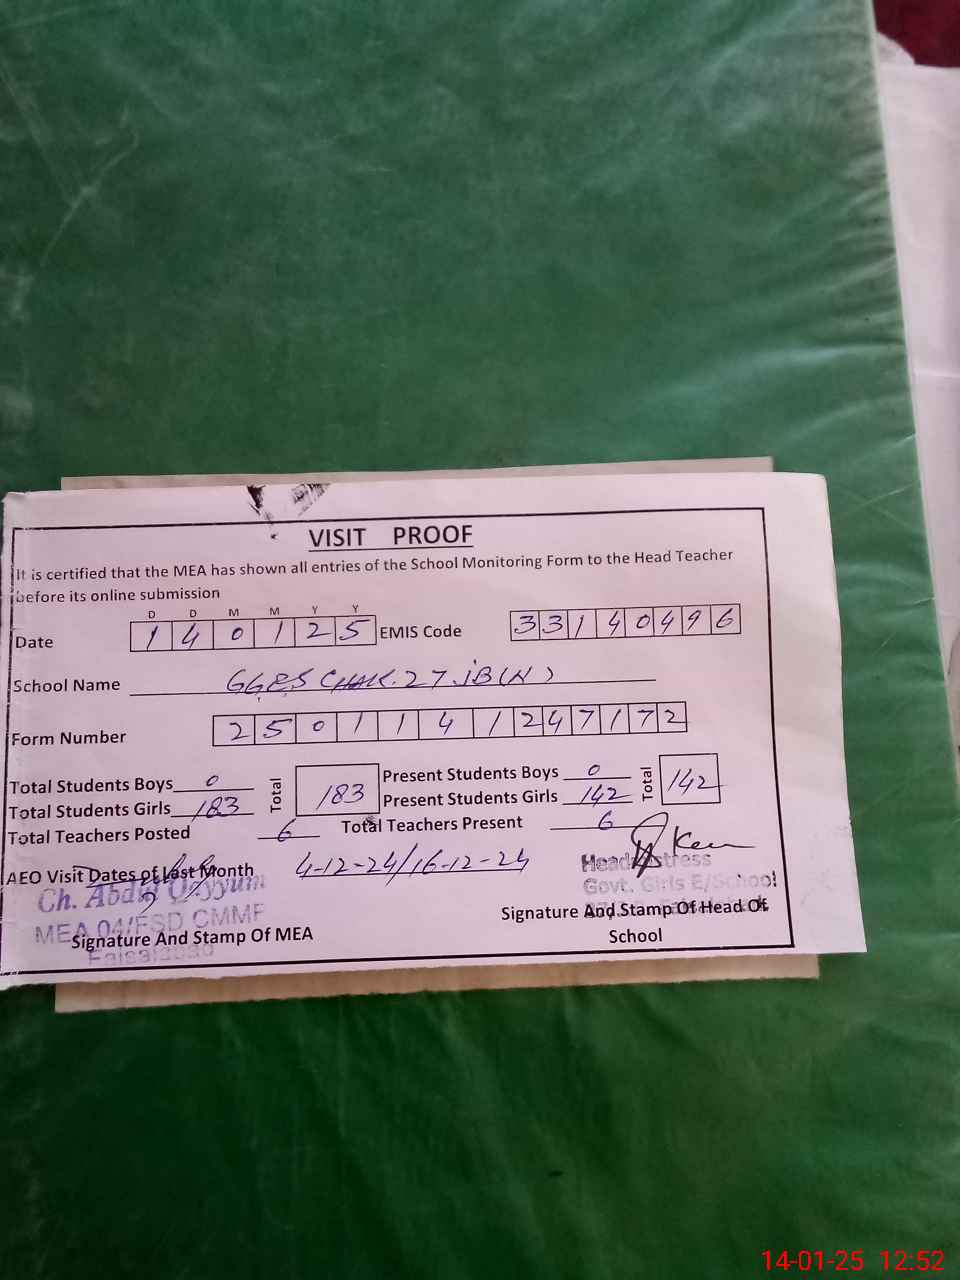 VISIT PROOF
It is certified that the MEA has shown all entries of the School Monitoring Form to the Head Teacher
before its online submission
D D M M Y Y
Date 1 4 0 1 2 5 EMIS Code 3 3 1 4 0 4 9 6
School Name GGES CHAK. 27 JB (N)
Form Number 2 5 0 1 1 4 1 2 4 7 1 7 2
Total Students Boys 0 Total 183 Present Students Boys 0 Total 142
Total Students Girls 183 Present Students Girls 142
Total Teachers Posted 6 Total Teachers Present 6
AEO Visit Dates of Last Month 4-12-24/16-12-24
Headmistress
Ch. Abdul Qayyum Govt. Girls E/School
MEA 04/FSD CMMF
Signature And Stamp Of MEA Signature And Stamp Of Head Of
Faisalabad School
14-01-25 12:52